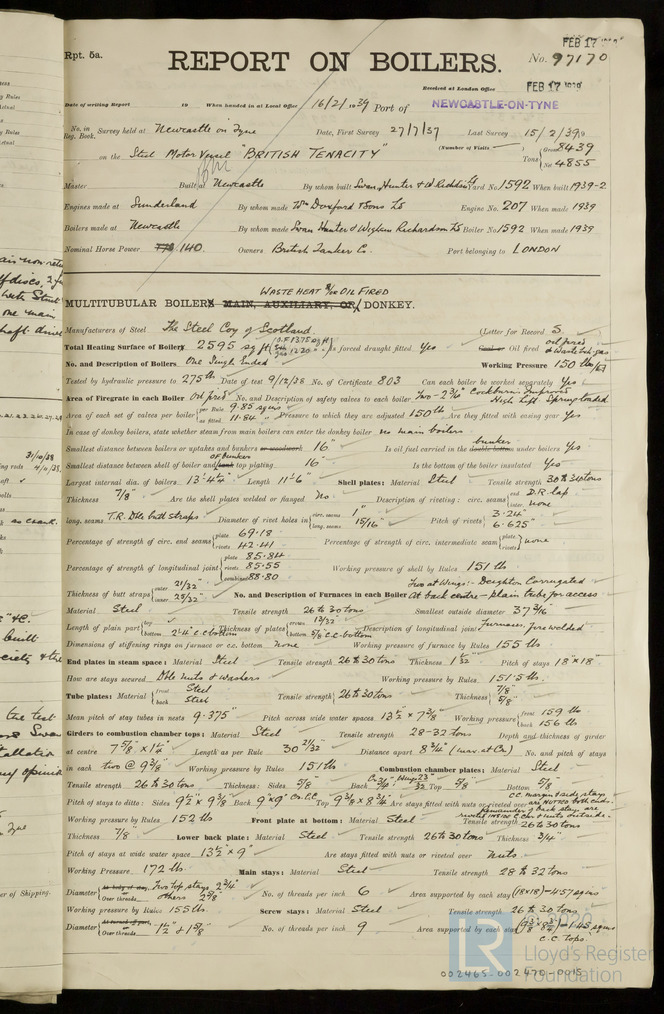 FEB 17 1939
Rpt. 5a.
REPORT ON BOILERS.
No. 97170
Received at London Office FEB 17 1939
Date of writing Report 19 When handed in at Local Office 16/2/1939 Port of NEWCASTLE-ON-TYNE
No. in Reg. Book. Survey held at Newcastle on Tyne Date, First Survey 27/7/37 Last Survey 15/2/39
(Number of Visits )
on the Steel Motor Vessel "BRITISH TENACITY" Tons { Gross 8439 Net 4855
Master Built at Newcastle By whom built Swan, Hunter & W. Richardson Ld Yard No. 1592 When built 1939-2
Engines made at Sunderland By whom made Wm Doxford & Sons Ld Engine No. 207 When made 1939
Boilers made at Newcastle By whom made Swan Hunter & Wigham Richardson Ld Boiler No. 1592 When made 1939
Nominal Horse Power 140 Owners British Tanker Co. Port belonging to LONDON
WASTE HEAT &/or OIL FIRED
MULTITUBULAR BOILERS MAIN, AUXILIARY, OR DONKEY.
Manufacturers of Steel The Steel Coy of Scotland. (Letter for Record S.
Total Heating Surface of Boilers 2595 sq ft (O.F 1375 sq ft 1220 ") Is forced draught fitted Yes Coal or Oil fired oil fired & Waste heat gas
No. and Description of Boilers One Single Ended Working Pressure 150 lbs
Tested by hydraulic pressure to 275 lb Date of test 9/12/38 No. of Certificate 803 Can each boiler be worked separately Yes
Area of Firegrate in each Boiler Oil fired No. and Description of safety valves to each boiler Two - 2¾" Cockburn Improved High Lift Spring loaded
Area of each set of valves per boiler { per Rule 9.85 sq ins as fitted 11.84 " Pressure to which they are adjusted 150 lb Are they fitted with easing gear Yes
In case of donkey boilers, state whether steam from main boilers can enter the donkey boiler no main boilers
Smallest distance between boilers or uptakes and bunkers or woodwork 16" Is oil fuel carried in the double bottom under boilers bunker Yes
Smallest distance between shell of boiler and tank top plating OF bunker 16" Is the bottom of the boiler insulated Yes
Largest internal dia. of boilers 13'-4¼" Length 11'-6" Shell plates: Material Steel Tensile strength 30 to 34 tons
Thickness 7/8" Are the shell plates welded or flanged No. Description of riveting: circ. seams { end D.R. lap inter. none
long. seams T.R. Dble butt straps Diameter of rivet holes in { circ. seams 1" long. seams 15/16" Pitch of rivets { 3.24" 6.625"
Percentage of strength of circ. end seams { plate 69.18 rivets 42.41 Percentage of strength of circ. intermediate seam { plate rivets } none
Percentage of strength of longitudinal joint { plate 85.84 rivets 85.55 combined 88.80 Working pressure of shell by Rules 151 lb
Thickness of butt straps { outer 21/32" inner 25/32" No. and Description of Furnaces in each Boiler Two at Wings:- Deighton Corrugated At back centre - plain tube for access
Material Steel Tensile strength 26 to 30 tons Smallest outside diameter
Length of plain part { top bottom 2'-4" c.c bottom Thickness of plates { crown 13/32" bottom Description of longitudinal joint Furnaces, fire welded
Dimensions of stiffening rings on furnace or c.c. bottom None Working pressure of furnace by Rules 155 lb
End plates in steam space: Material Steel Tensile strength 26 to 30 tons Thickness 1 1/32" Pitch of stays 18" x 18"
How are stays secured Dble nuts & washers Working pressure by Rules 151.5 lb
Tube plates: Material { front Steel back Steel Tensile strength { 26 to 30 tons Thickness { 7/8" 5/8"
Mean pitch of stay tubes in nests 9.375" Pitch across wide water spaces 13½" x 7⅜" Working pressure { front 159 lb back 156 lb
Girders to combustion chamber tops: Material Steel Tensile strength 28-32 tons Depth and thickness of girder
at centre 7⅝" x 1¼" Length as per Rule 30 21/32" Distance apart 8¾" (max. at CL) No. and pitch of stays
in each two @ 9⅜" Working pressure by Rules 151 lb Combustion chamber plates: Material Steel
Tensile strength 26 to 30 tons Thickness: Sides 5/8" Back Top 5/8" Bottom 5/8"
Pitch of stays to ditto: Sides 9½" x 9⅜" Back 9" x 9" Top 9⅜ x 8¾" Are stays fitted with nuts or riveted over C.C. margin & side stays are nutted both ends. Remainder of back stay, are riveted
Working pressure by Rules 152 lb Front plate at bottom: Material Steel Tensile strength 26 to 30 tons
Thickness 7/8" Lower back plate: Material Steel Tensile strength 26 to 30 tons Thickness 3/4"
Pitch of stays at wide water space 13½" x 9" Are stays fitted with nuts or riveted over Nuts.
Working Pressure 172 lb Main stays: Material Steel Tensile strength 28 to 32 tons
Diameter { At body of stay, Over threads Two top stays 2¾" others 2⅝" No. of threads per inch 6 Area supported by each stay (18 x 18) - 457 sq ins
Working pressure by Rules 155 lb Screw stays: Material Steel Tensile strength 26 to 30 tons
Diameter { At turned off part, Over threads 1½" & 1⅝" No. of threads per inch 9 Area supported by each stay C.C. tops.
© 2020
LR
Lloyd's Register
Foundation
002465-002470-0015